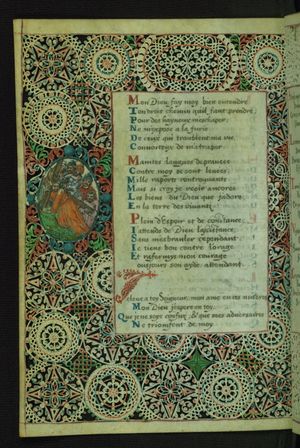 Mon Dieu fay moy bien entendre
Ton droit chemin quil faut prendre
Pour des hayneux meschaper
Ne mexpose a la furie
De ceux qui troublent ma vie
Convoiteux de matrapar
Maintes langues depravees
Contre moy se sont levees
Mille raports controuvants
Mais si croy je veoir ancores
Les biens du Dieu que jadore
En la terre des vivant
Plein d'Espoir et de constance
Iattende de Dieu lassistance
Sans mesbranler cependant
Ie tiens bon contre lorage
Et refermis mon courage
tousjours son ayde attendant
Ieleve a toy Seigneur, mon ame en ces misere
Mon Dieu jespere en toy
Que je ne soye confux, & que mes adversaires
Ne triomfent de moy